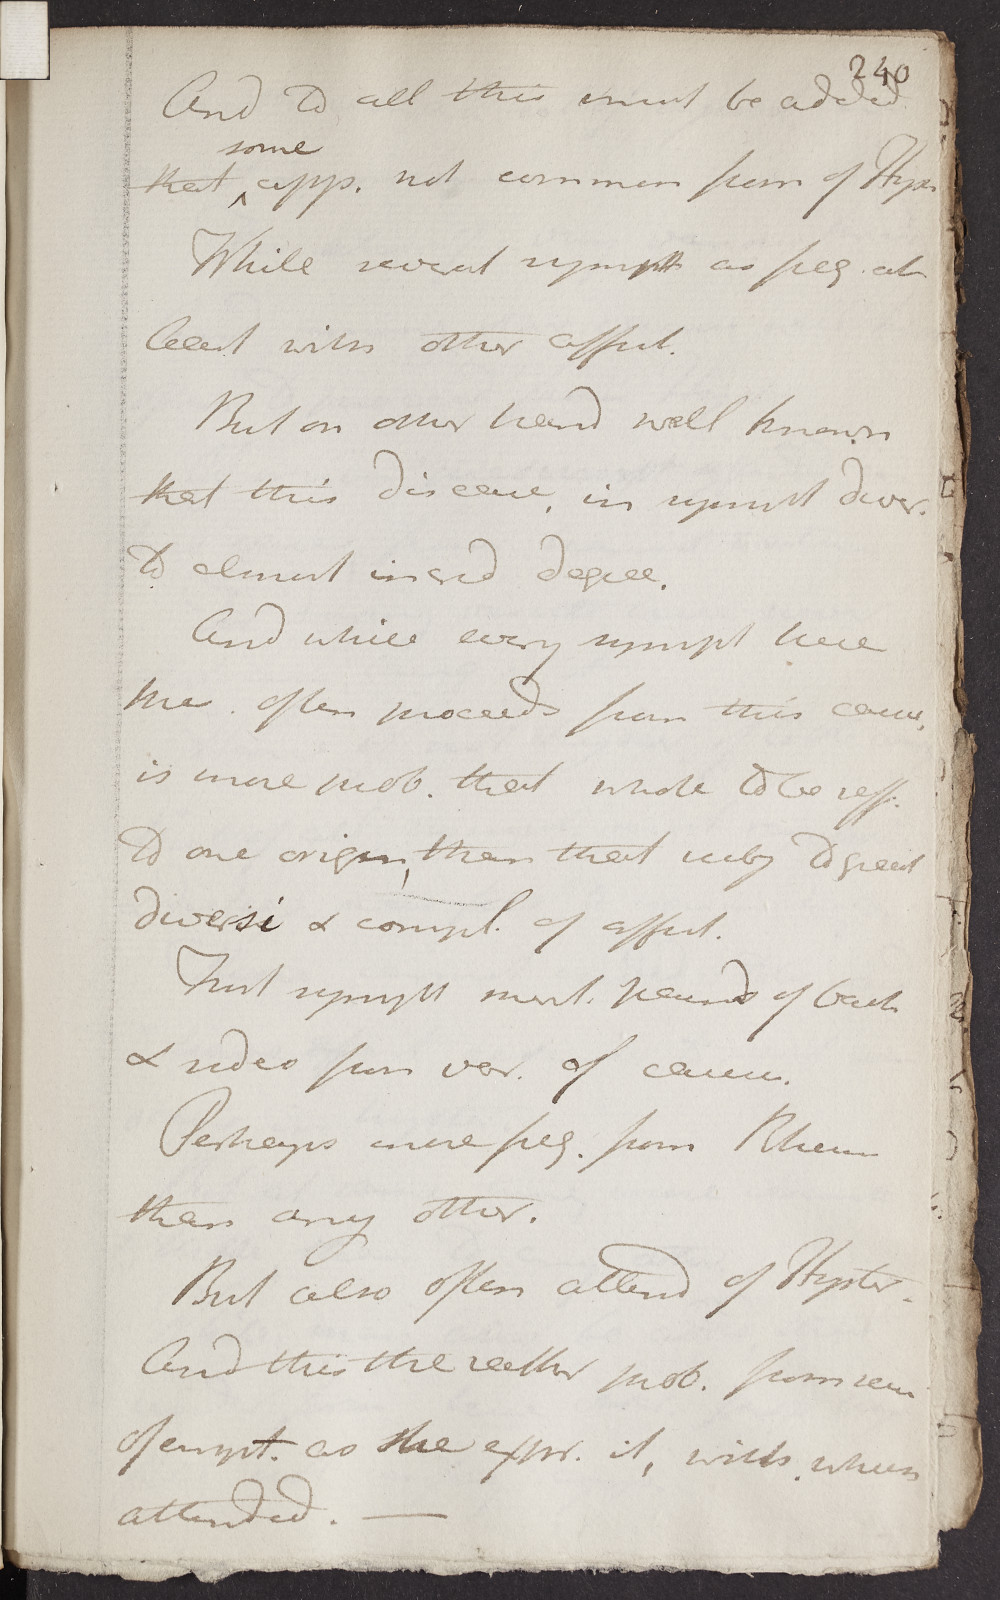 240
And to all this must be added
some
that ^ app. not common from of Hyst
While several sympt as freq. at
least with other affect.
But on other hand well known
that this disease, in sympt diver.
to almost incred degree.
And while every sympt here
often proceeds from this cause,
is more prob. that whole to be ref.
to one origin, than that to great
diversi & compl. of affect.
That sympt ment. pains of back
& sides from var. of causes.
Perhaps more freq. from Rheum
than any other.
But also often attend of Hyster.
And this the rather prob. from
as she expr. it, with which
attended. —